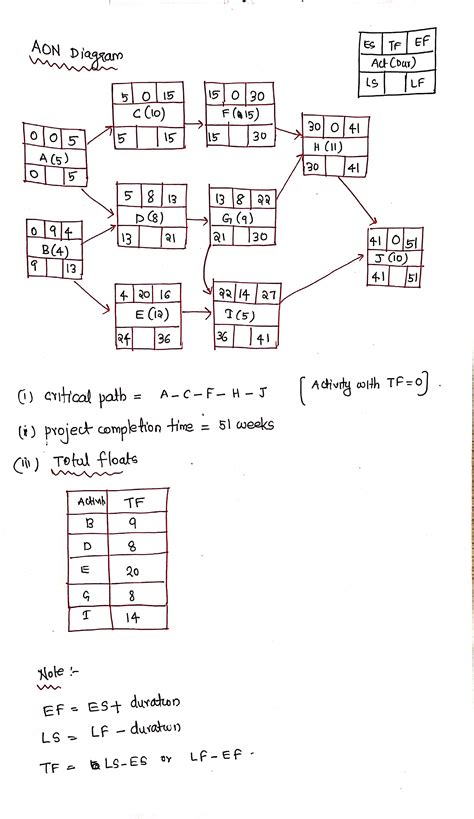 AON Diagram
ES TF EF
Act (Dur)
LS LF
5 0 15
C (10)
5 15
15 0 30
F (15)
15 30
30 0 41
H (11)
30 41
0 0 5
A (5)
0 5
5 8 13
D (8)
13 21
13 8 22
G (9)
21 30
0 9 4
B (4)
9 13
41 0 51
J (10)
41 51
4 20 16
E (12)
24 36
22 14 27
I (5)
36 41
(i) critical path = A - C - F - H - J [Activity with TF=0].
(ii) project completion time = 51 weeks
(iii) Total floats
Activity TF
B 9
D 8
E 20
G 8
I 14
Note :-
EF = ES + duration
LS = LF - duration
TF = LS-ES or LF-EF.